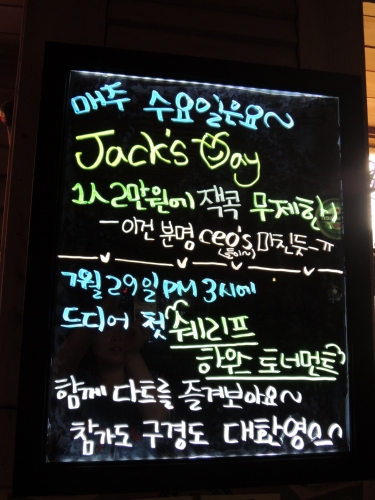 매주 수요일은요~
Jack's Day
1人 2만원에 잭콕 무제한!!
-이건 분명 ceo's 미친듯-ㅠ
(둘이~)
7월 29일 PM 3시에
드디어 첫 쉐리프
하우스 토너먼트
함께 다트를 즐겨보아요~
참가도 구경도 대환영^^